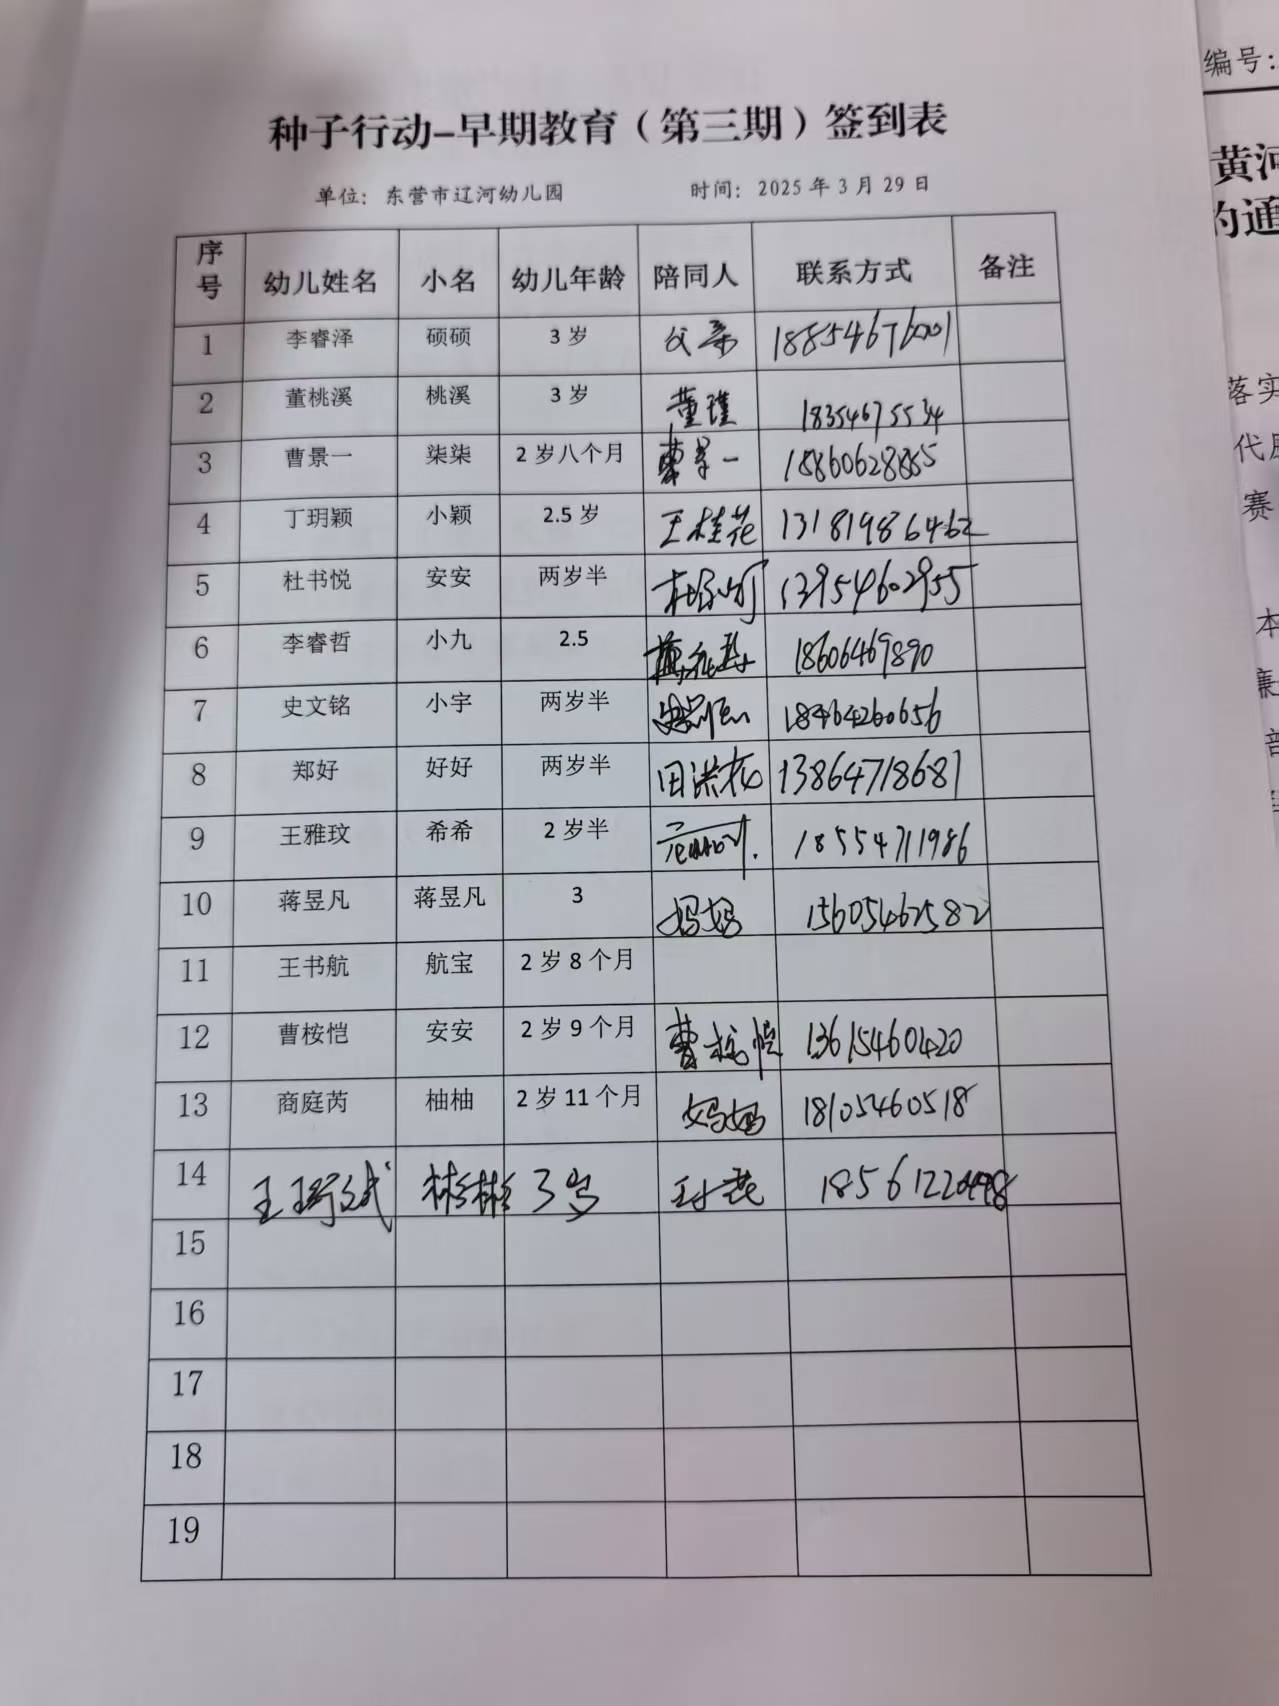 种子行动-早期教育（第三期）签到表
单位：东营市辽河幼儿园 时间：2025年3月29日
序号 幼儿姓名 小名 幼儿年龄 陪同人 联系方式 备注
1 李睿泽 硕硕 3岁 父亲
2 董桃溪 桃溪 3岁 董瑾 18354675534
3 曹景一 柒柒 2岁八个月 曹景一 18860628855
4 丁玥颖 小颖 2.5岁 王桂花 13181986462
5 杜书悦 安安 两岁半 13954602955
6 李睿哲 小九 2.5 18606469890
7 史文铭 小宇 两岁半 18464260656
8 郑好 好好 两岁半 田洪花 13864718681
9 王雅玟 希希 2岁半 18554711986
10 蒋昱凡 蒋昱凡 3 妈妈 15605462582
11 王书航 航宝 2岁8个月
12 曹桉恺 安安 2岁9个月 曹桉恺 13615460420
13 商庭芮 柚柚 2岁11个月 妈妈 18105460518
14 彬彬 3岁
15
16
17
18
19
编号：
黄河
的通
落实
代
赛
本
廉
部